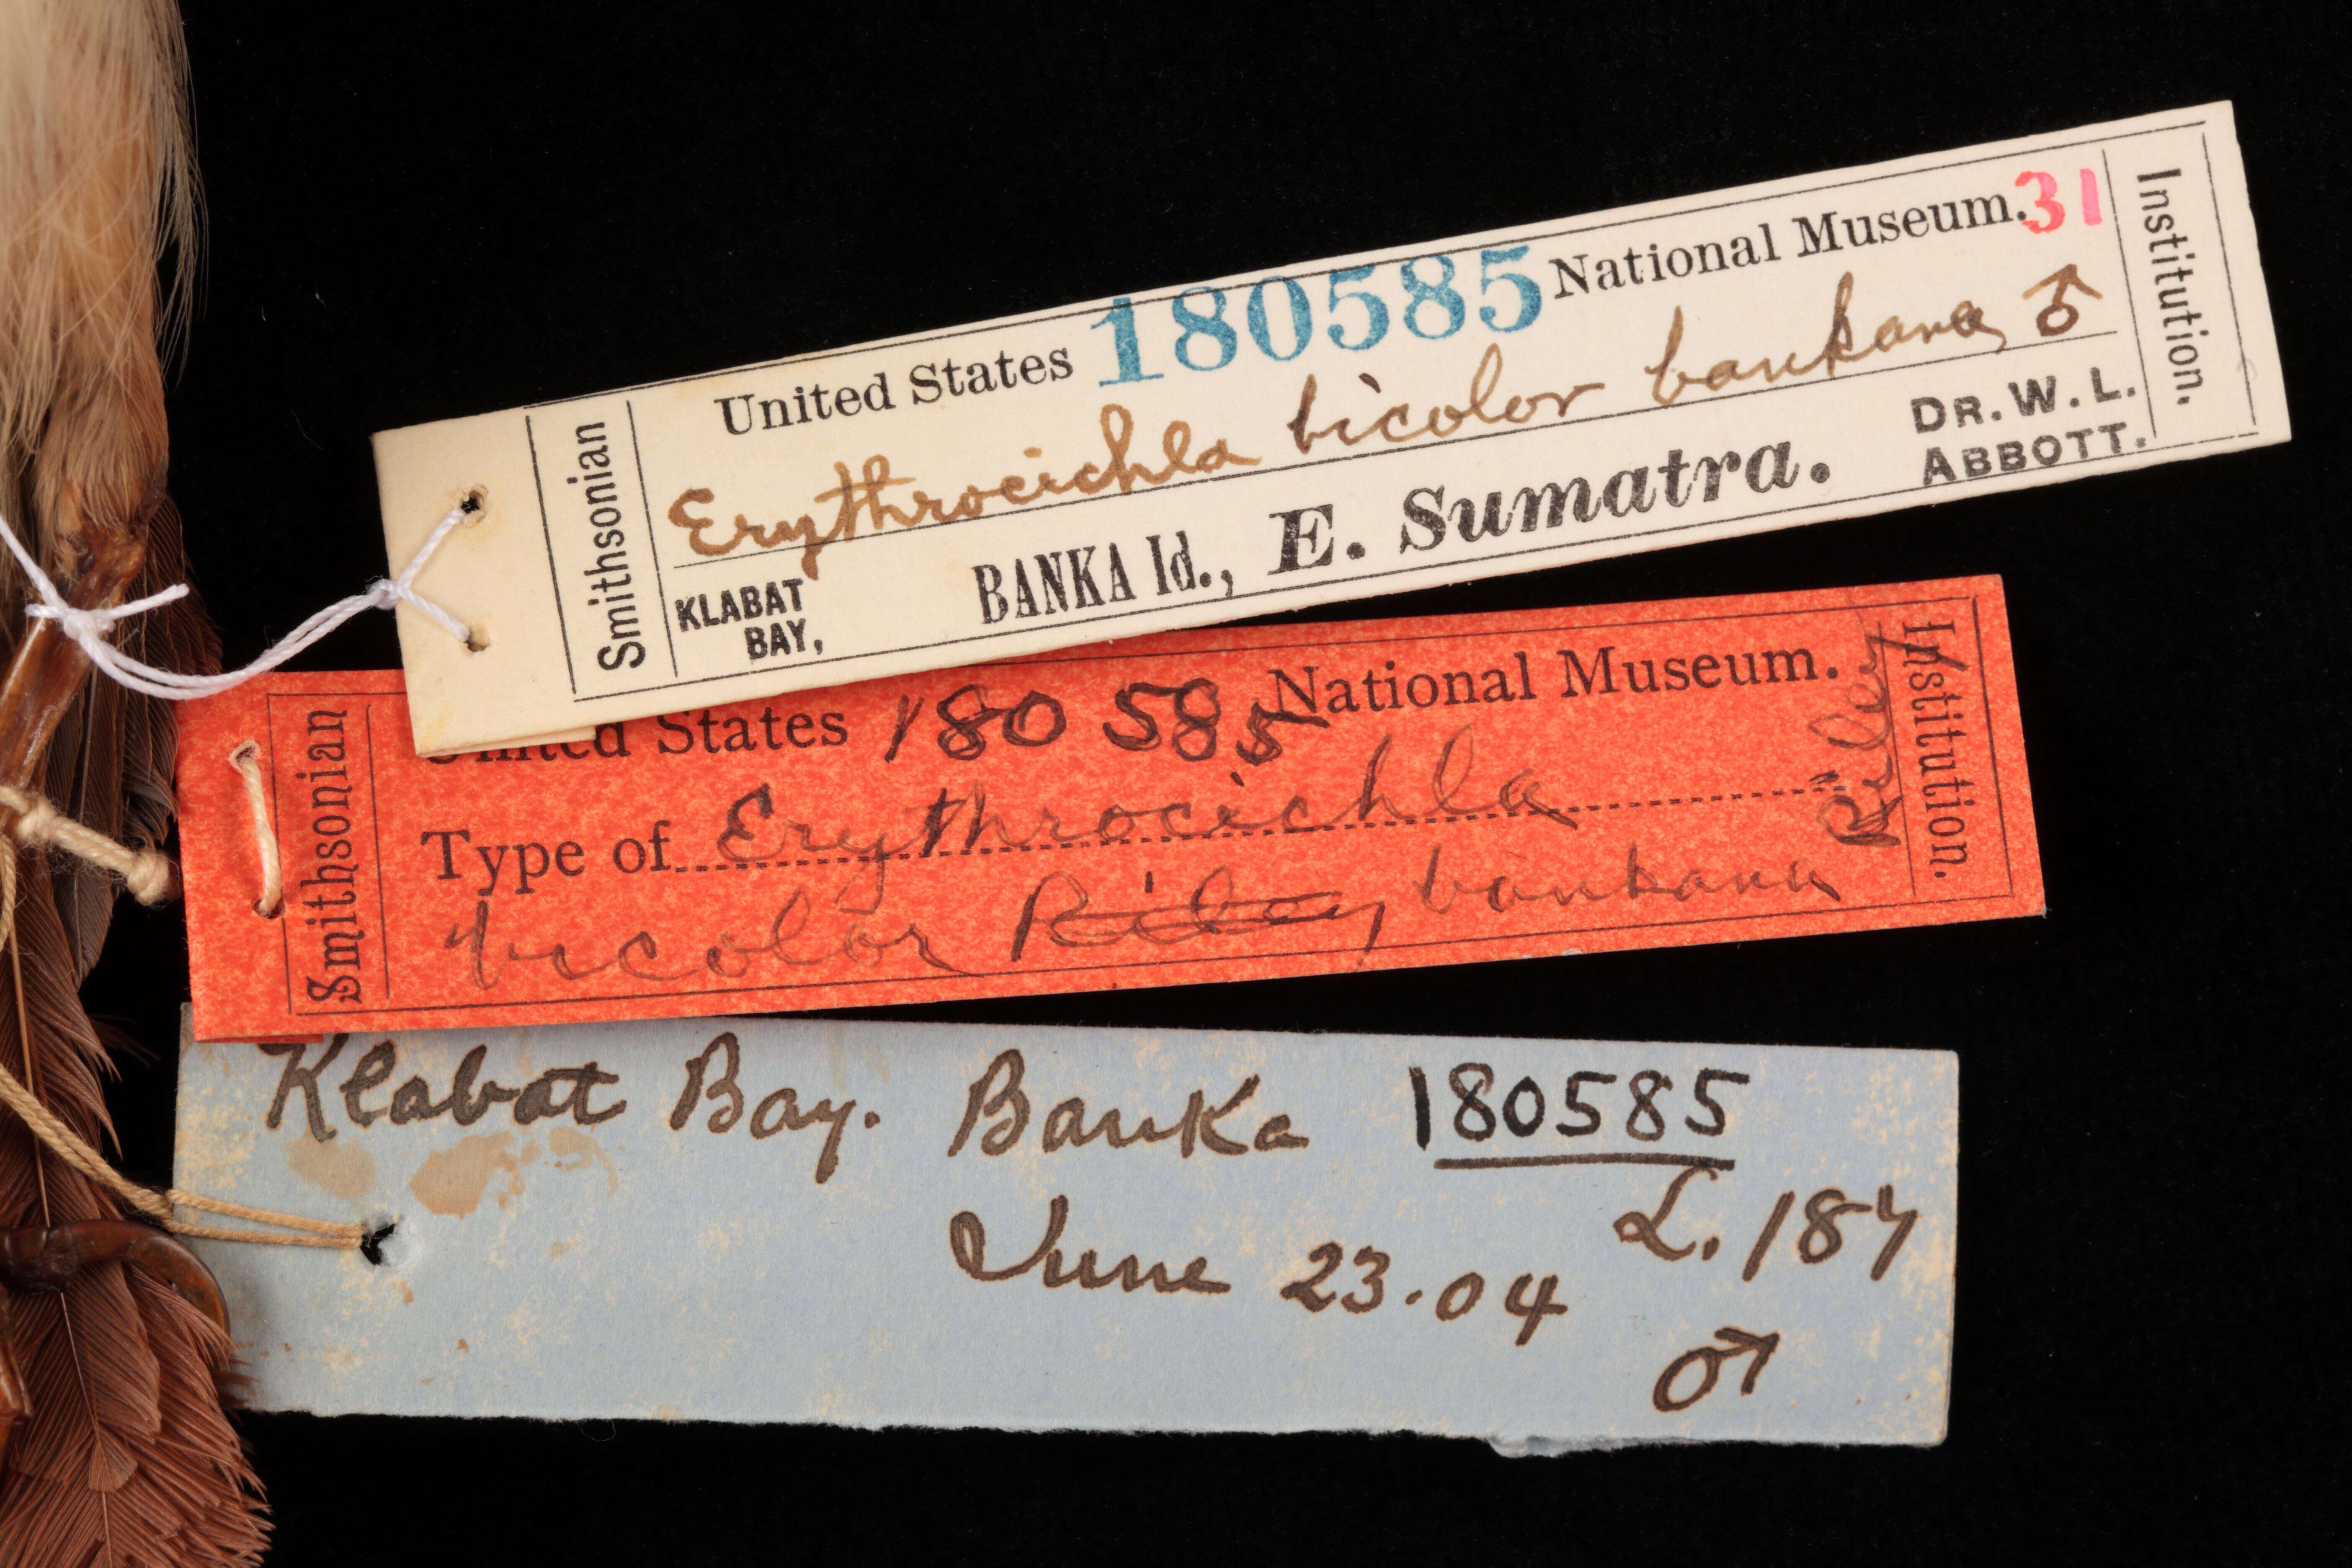 Smithsonian
United States 180585 National Museum. 31
Erythrocichla bicolor bankana ♂
KLABAT BAY, BANKA Id., E. Sumatra.
DR. W. L. ABBOTT.
Institution.
Smithsonian
United States 180585 National Museum.
Type of Erythrocichla
bicolor Riley bankana Riley
Institution.
Klabat Bay. Banka 180585
June 23.04 L. 187
♂